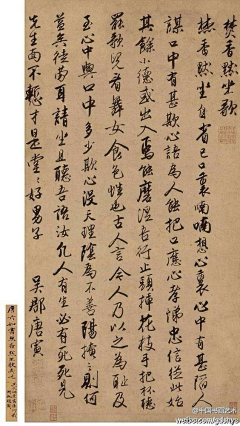 焚香默坐歌
焚香默坐自省己口裏喃喃想心裏心中有甚陷人
謀口中有甚欺心語為人能把口應心孝悌忠信從此始
其餘小德或出入焉能磨涅吾行止頭插花枝手把杯聽
罷歌兒看舞女食色性也古人言今人乃以之為恥及
至心中與口中多少欺心沒天理陰為不善陽掩之則何
益矣徒勞耳請坐且聽吾語汝凡人有生必有死死見
先生面不慙才是堂堂好男子
吳郡唐寅
@中国书画艺术